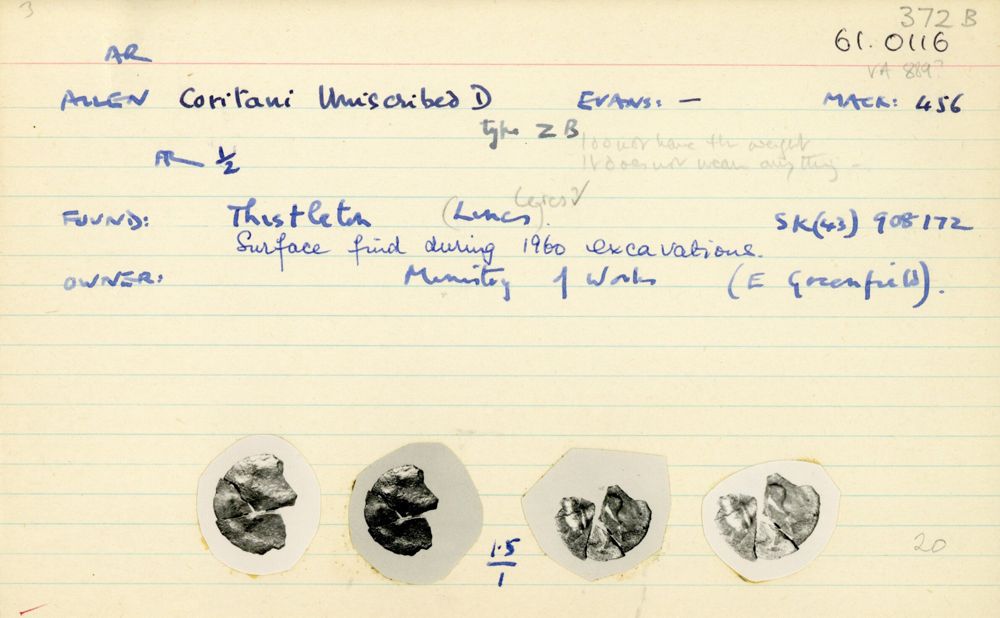 3
372 B
61.0116
AR
VA 889?
ALLEN Coritani Uniscribed D EVANS: — MACK: 456
type Z B
I do not have the weight
It does not mean anything –
AR 1/2
Leics ✓
FOUND: Thistleton (Lincs). SK(43) 908172
Surface find during 1960 excavations.
OWNER: Ministry of Works (E Greenfield).
1.5
1
20